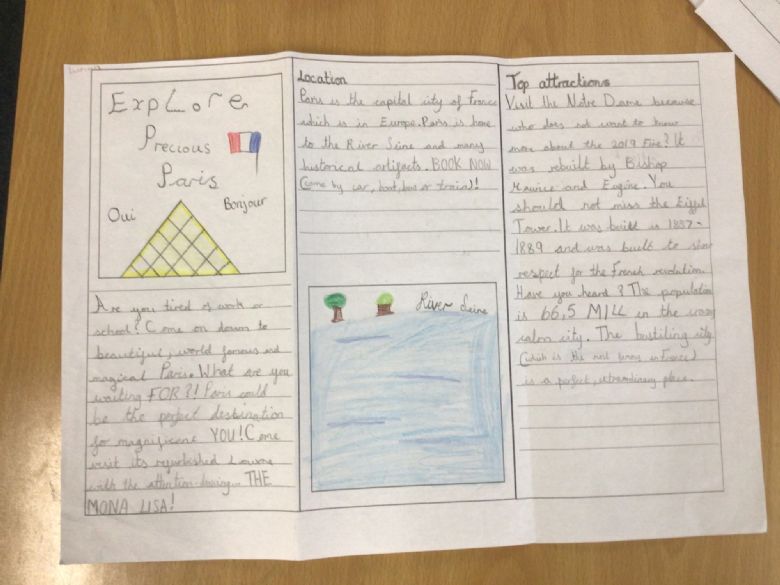 Explore
Precious
Paris
Oui
Bonjour
Are you tired of work or
school? Come on down to
beautiful, world famous and
magical Paris. What are you
waiting FOR?! Paris could
be the perfect destination
for magnificent YOU! Come
visit its refurbished Louvre
with the attention-drawing... THE
MONA LISA!
Location
Paris is the capital city of France
which is in Europe. Paris is home
to the River Seine and many
historical artifacts. BOOK NOW
(come by car, boat, bus or train)!
River Seine
Top attractions
Visit the Notre Dame because
who does not want to know
more about the 2019 Fire? It
was rebuilt by Bishop
Maurice and Eugine. You
should not miss the Eiffel
Tower. It was built in 1887-
1889 and was built to show
respect for the French revolution.
Have you heard? The population
is 66,5 MILL in the crazy
calm city. The bustiling city
(which is the in France)
is a perfect, extraordinary place.